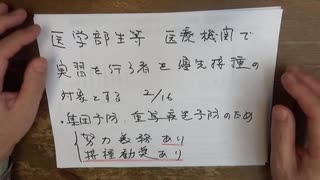 医学部生等 医療機関で
実習を行う者を優先接種の
対象とする 2/16
・集団予防 重篤疾患予防のため
努力義務あり
接種勧奨あり